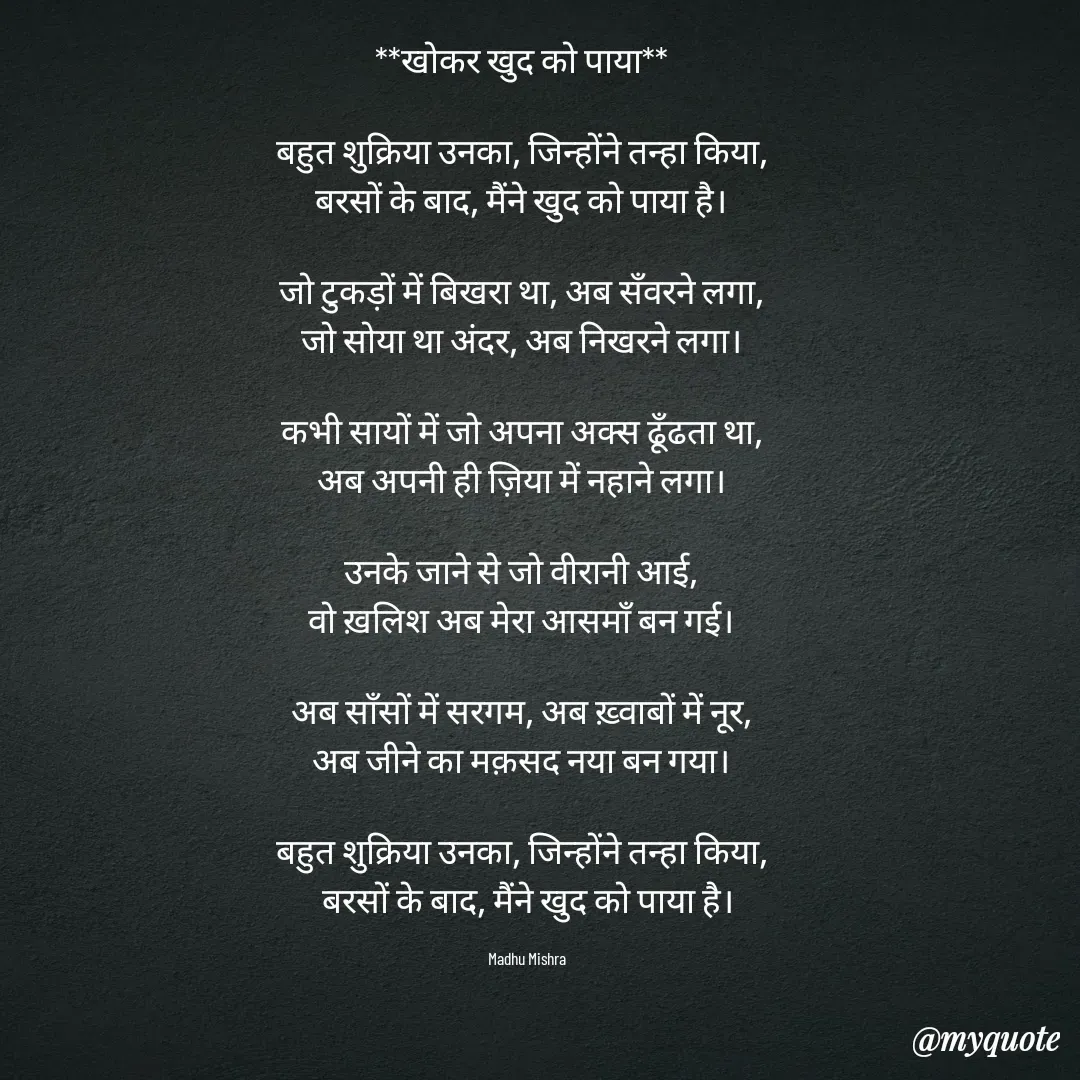 **खोकर खुद को पाया**
बहुत शुक्रिया उनका, जिन्होंने तन्हा किया,
बरसों के बाद, मैंने खुद को पाया है।
जो टुकड़ों में बिखरा था, अब सँवरने लगा,
जो सोया था अंदर, अब निखरने लगा।
कभी सायों में जो अपना अक्स ढूँढता था,
अब अपनी ही ज़िया में नहाने लगा।
उनके जाने से जो वीरानी आई,
वो ख़लिश अब मेरा आसमाँ बन गई।
अब साँसों में सरगम, अब ख़्वाबों में नूर,
अब जीने का मक़सद नया बन गया।
बहुत शुक्रिया उनका, जिन्होंने तन्हा किया,
बरसों के बाद, मैंने खुद को पाया है।
Madhu Mishra
@myquote